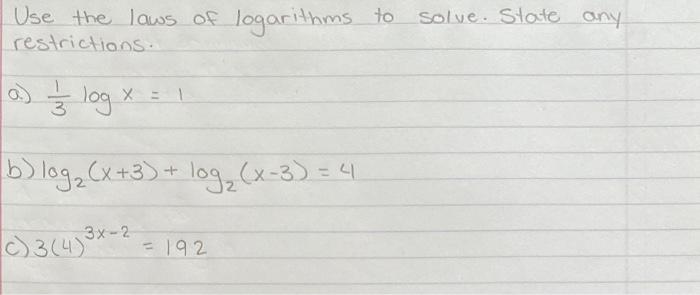 Use the laws of logarithms to solve. State any
restrictions.
a) 1/3 log x = 1
b) log₂(x+3) + log₂(x-3) = 4
c) 3(4)^(3x-2) = 192